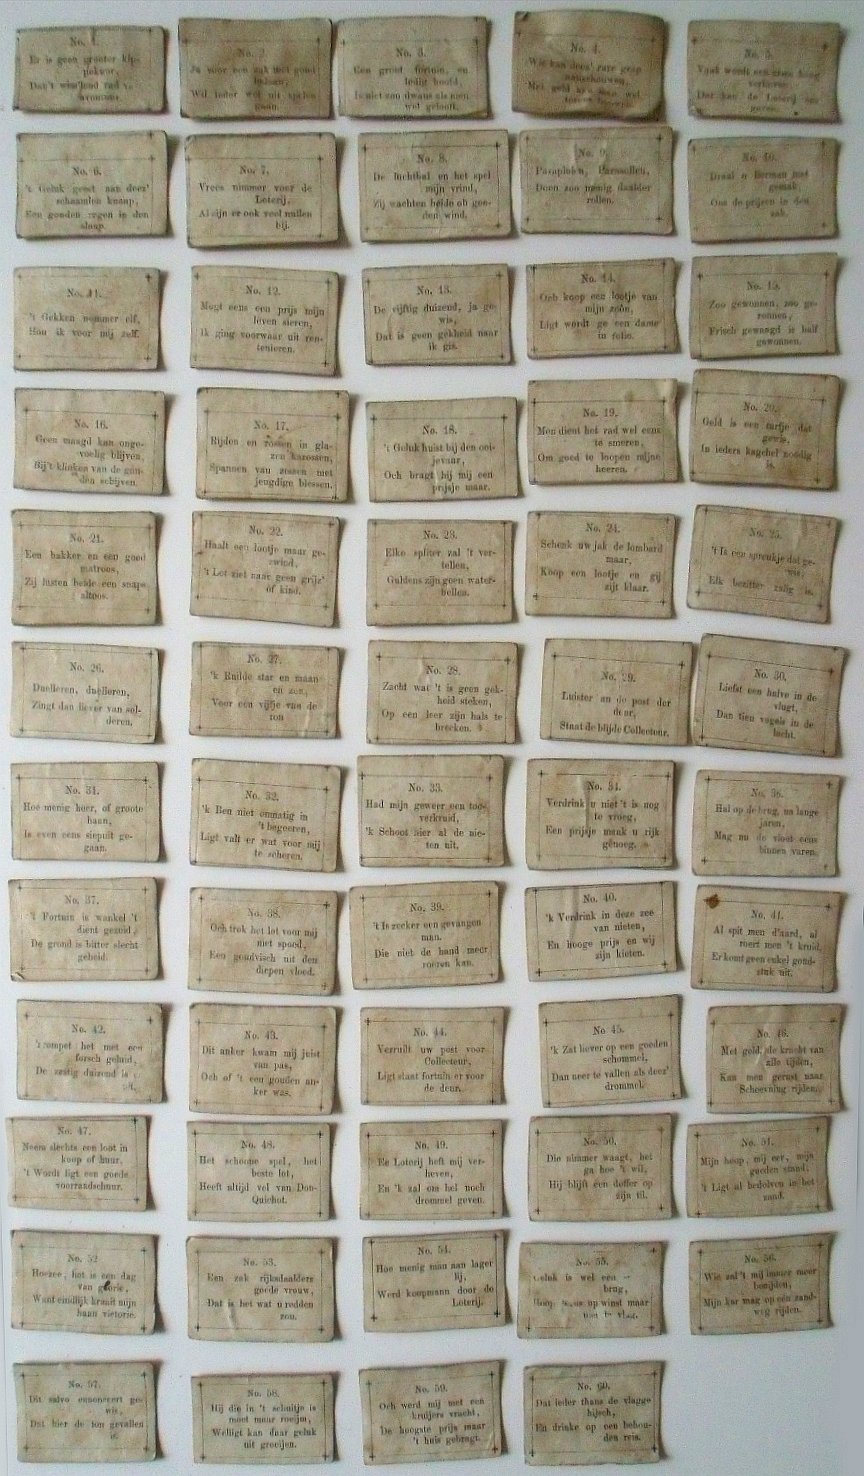 No. 1.
Er is geen grooter
No. 2.
Ja voor een zak met goud
Wil ieder wel uit spelen
gaan.
No. 3.
Een groot fortuin, en
ledig hoofd,
Is niet zoo dwaas als men
wel gelooft.
No. 4.
Wie kan deez' rare
aanschouwen,
Met geld
No. 5.
Vaak wordt een
de Loterij
No. 6.
't Geluk geeft aan deez'
schaamlen knaap,
Een gouden regen in den
slaap.
No. 7.
Vrees nimmer voor de
Loterij,
Al zijn er ook veel nullen
bij.
No. 8.
De luchtbal en het spel
mijn vrind,
Zij wachten beide op goe-
den wind.
No. 9.
Parapluien, Parasollen,
Doen zoo menig daalder
rollen.
No. 10.
Draai o Herman met
gemak
Ons de prijzen in den
zak.
No. 11.
't Gekken nommer elf,
Hou ik voor mij zelf.
No. 12.
Mogt eens een prijs mijn
leven sieren,
Ik ging voorwaar uit ren-
tenieren.
No. 13.
De vijftig duizend, ja ge-
wis,
Dat is geen gekheid naar
ik gis.
No. 14.
Och koop een lootje van
mijn zoon,
Ligt wordt ge een dame
in folio.
No. 15.
Zoo gewonnen, zoo ge-
ronnen,
Frisch gewaagd is half
gewonnen.
No. 16.
Geen maagd kan onge-
voelig blijven,
Bij't klinken van de gou-
den schijven.
No. 17.
Rijden en rossen in gla-
zen karossen,
Spannen van zessen met
jeugdige blessen.
No. 18.
't Geluk huist bij den ooi-
jevaar,
Och bragt hij mij een
prijsje maar.
No. 19.
Men dient het rad wel eens
te smeren,
Om goed te loopen mijne
heeren.
No. 20.
Geld is een turfje dat
gewis,
In ieders kagchel noodig
is.
No. 21.
Een bakker en een goed
matroos,
Zij lusten beide een snaps
altoos.
No. 22.
Haalt een lootje maar ge-
zwind,
't Lot ziet naar geen grijs'
of kind.
No. 23.
Elke splitter zal 't ver-
tellen,
Guldens zijn geen water-
bellen.
No. 24.
Schenk uw jak de lombard
maar,
Koop een lootje en gij
zijt klaar.
No. 25.
't Is een spreukje dat ge-
wis,
Elk bezitter zalig is.
No. 26.
Duelleren, duelleren,
Zingt dan liever van sol-
deren.
No. 27.
'k Ruilde star en maan
en zon,
Voor een vijfje van de
ton
No. 28.
Zacht wat 't is geen gek-
heid steken,
Op een leer zijn hals te
breeken.
No. 29.
Luister aan de post der
deur,
Staat de blijde Collecteur.
No. 30.
Liefst een halve in de
vlugt,
Dan tien vogels in de
lucht.
No. 31.
Hoe menig heer, of groote
haan,
Is even eens siepuit ge-
gaan.
No. 32.
'k Ben niet onmatig in
't begeeren,
Ligt valt er wat voor mij
te scheren.
No. 33.
Had mijn geweer een too-
verkruid,
'k Schoot hier al de nie-
ten uit.
No. 34.
Verdrink u niet 't is nog
te vroeg,
Een prijsje maak u rijk
genoeg.
No. 36.
Hal op de brug, na lange
jaren,
Mag nu de vloot eens
binnen varen.
No. 37.
't Fortuin is wankel 't
dient gezeid,
De grond is bitter slecht
geheid.
No. 38.
Och trok het lot voor mij
met spoed,
Een goudvisch uit den
diepen vloed.
No. 39.
't Is zeeker een gevangen
man.
Die niet de hand meer
roeren kan.
No. 40.
'k Verdrink in deze zee
van nieten,
En hooge prijs en wij
zijn kieten.
No. 41.
Al spit men d'aard, al
roert men 't kruid,
Er komt geen enkel goud-
stuk uit.
No. 42.
't rompet het met een
forsch geluid,
De zestig duizend is
No. 43.
Dit anker kwam mij juist
van pas,
Och of 't een gouden an-
ker was.
No. 44.
Verruilt uw post voor
Collecteur,
Ligt staat fortuin er voor
de deur.
No. 45.
'k Zat liever op een gouden
schommel,
Dan neer te vallen als deez'
drommel.
No. 46.
Met geld, de kracht van
alle tijden,
Kan men gerust naar
Scheevning rijden.
No. 47.
Neem slechts een loot in
koop of huur,
't Wordt ligt een goede
voorraadschuur.
No. 48.
Het schoonste spel, het
beste lot,
Heeft altijd vel van Don-
Quichot.
No. 49.
De Loterij heft mij ver-
heven,
En 'k zal om hel noch
drommel geven.
No. 50.
Die nimmer waagt, het
ga hoe 't wil,
Hij blijft een doffer op
zijn til.
No. 51.
Mijn hoop, mij eer, mijn
goeden stand,
't Ligt al bedolven in het
zand.
No. 52
Hoezee, het is een dag
van glorie,
Want eindlijk kraait mijn
haan victorie.
No. 53.
Een zak rijksdaalders
goede vrouw,
Dat is het wat u redden
zou.
No. 54.
Hoe menig man aan lager
lij,
Werd koopmann door de
Loterij.
No. 55.
Geluk is wel een
brug,
Hoop op winst maar
niet te vlug.
No. 56.
Wie zal 't mij immer meer
benijden,
Mijn kar mag op een zand-
weg rijden.
No. 57.
Dit salvo annonceert ge-
wis,
Dat hier de ton gevallen
is.
No. 58.
Hij die in 't schuitje is
moet maar roeijen,
Welligt kan daar geluk
uit groeijen.
No. 59.
Och werd mij met een
kruijers vracht,
De hoogste prijs maar
't huis gebragt.
No. 60.
Dat ieder thans de vlagge
hijsch,
En drinke op een behou-
den reis.